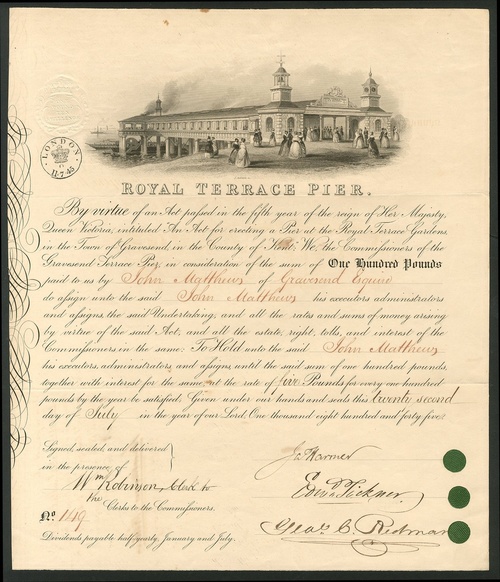 LONDON
11·7·45
ROYAL TERRACE PIER.
By virtue of an Act passed in the fifth year of the reign of Her Majesty,
Queen Victoria, intituled An Act for erecting a Pier at the Royal Terrace Gardens
in the Town of Gravesend, in the County of Kent: We, the Commissioners of the
Gravesend Terrace Pier, in consideration of the sum of One Hundred Pounds
paid to us by John Matthews of Gravesend Esquire
do assign unto the said John Matthews his executors administrators
and assigns, the said Undertaking, and all the rates and sums of money arising
by virtue of the said Act, and all the estate, right, tolls, and interest of the
Commissioners in the same: To Hold unto the said John Matthews
his executors, administrators and assigns, until the said sum of one hundred pounds,
together with interest for the same, at the rate of five Pounds for every one hundred
pounds by the year be satisfied. Given under our hands and seals this twenty second
day of July in the year of our Lord, One thousand eight hundred and forty five.
Signed, sealed, and delivered
in the presence of
Wm Robinson, Clerk to
the Clerks to the Commissioners.
No. 149
Dividends payable half-yearly, January and July.
Geo. C. Redman